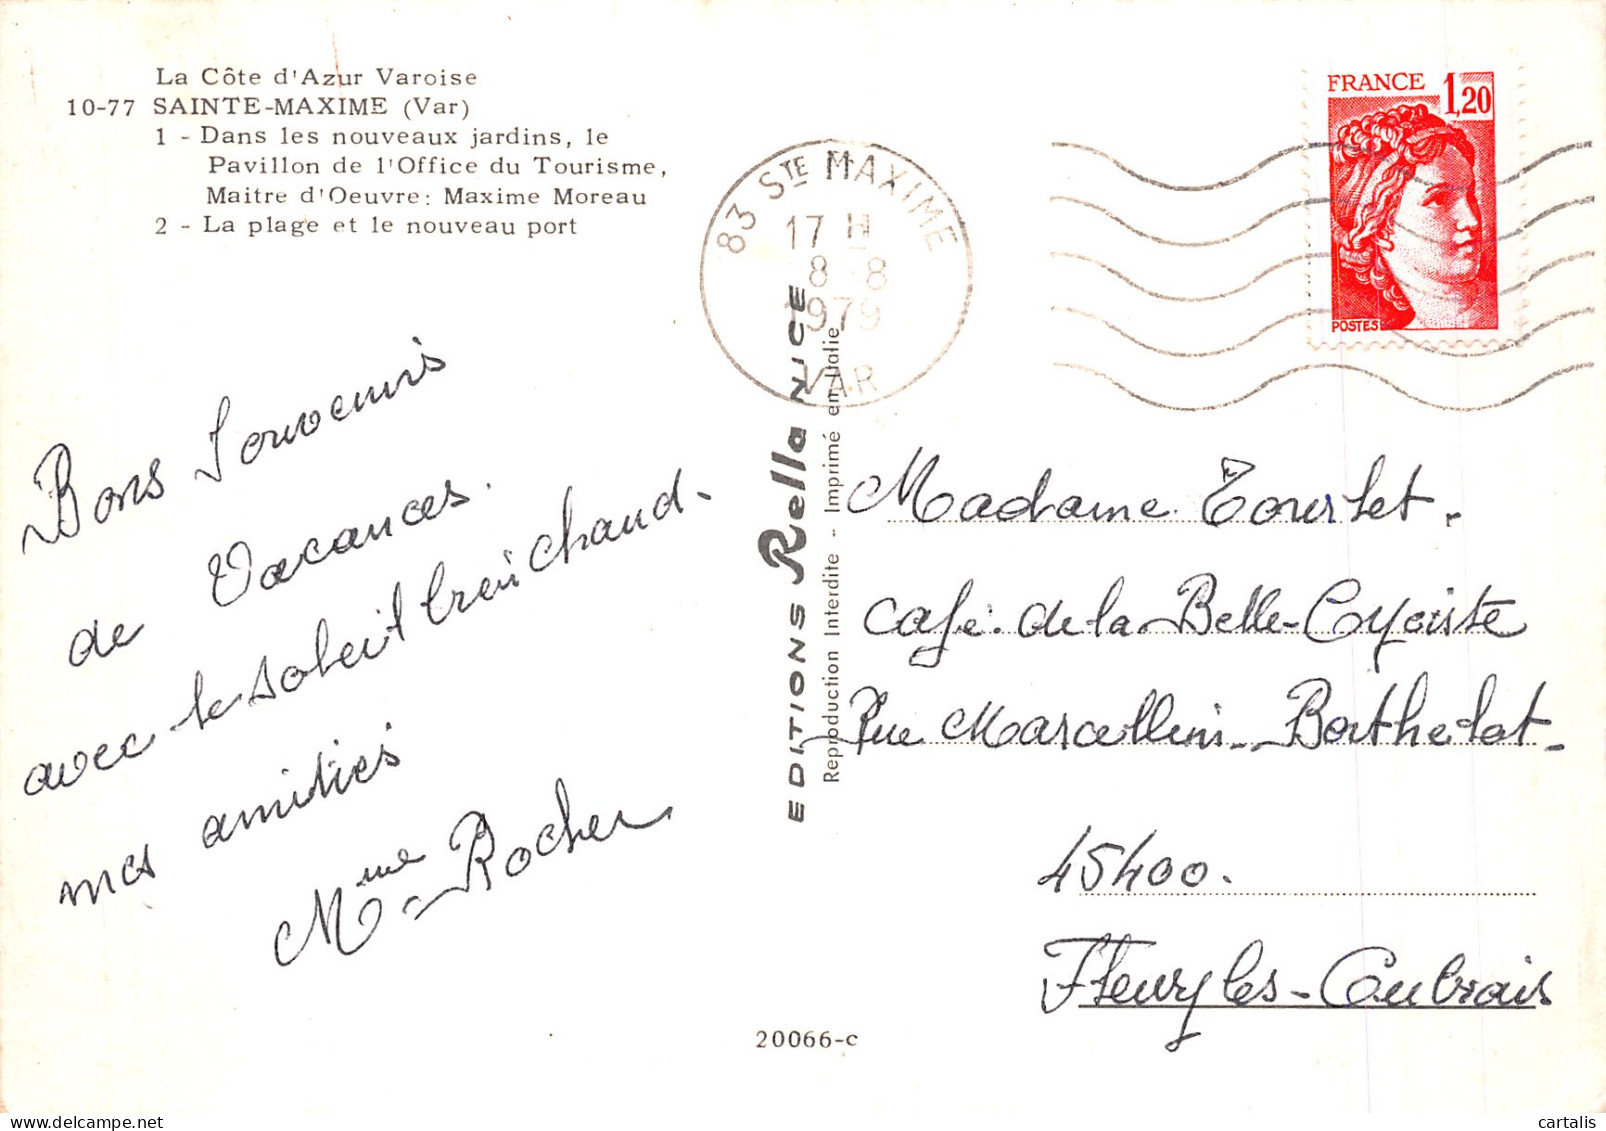 La Côte d'Azur Varoise
10-77 SAINTE-MAXIME (Var)
1 - Dans les nouveaux jardins, le
Pavillon de l'Office du Tourisme,
Maitre d'Oeuvre: Maxime Moreau
2 - La plage et le nouveau port
FRANCE 1,20
POSTES
83 STE MAXIME
17 H
8 8
1979
VAR
Bons Souvenirs
de Vacances.
avec le soleil bien chaud-
mes amitiés
Mme Rocher
EDITIONS Rella NICE
Reproduction Interdite - Imprimé en Italie
Madame Tourtet.
Café. de la Belle-Cycliste
Rue Marcellin-Berthelot-
45400.
Fleury les-Aubrais
20066-c
cartalis